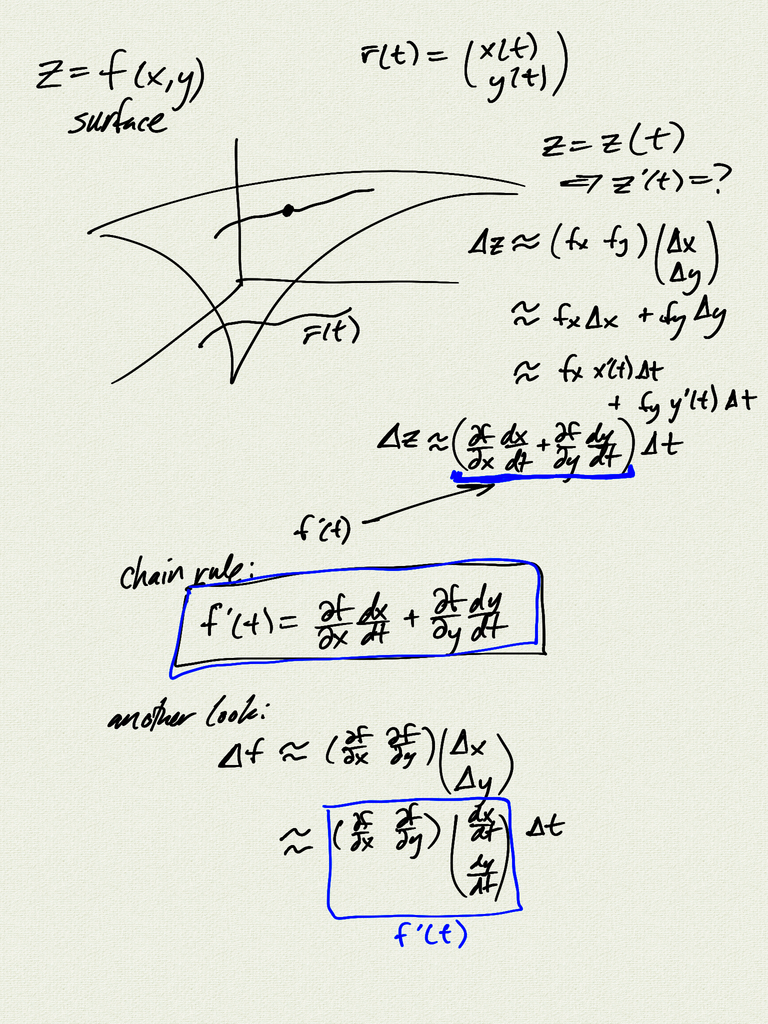 z = f(x,y)
surface
r(t) = (x(t)
y(t))
z = z(t)
⇒ z'(t) = ?
Δz ≈ (fx fy)(Δx
Δy)
≈ fx Δx + fy Δy
≈ fx x'(t) Δt
+ fy y'(t) Δt
r(t)
Δz ≈ (∂f/∂x dx/dt + ∂f/∂y dy/dt) Δt
f'(t)
chain rule:
f'(t) = ∂f/∂x dx/dt + ∂f/∂y dy/dt
another look:
Δf ≈ (∂f/∂x ∂f/∂y)(Δx
Δy)
≈ (∂f/∂x ∂f/∂y)(dx/dt
dy/dt) Δt
f'(t)